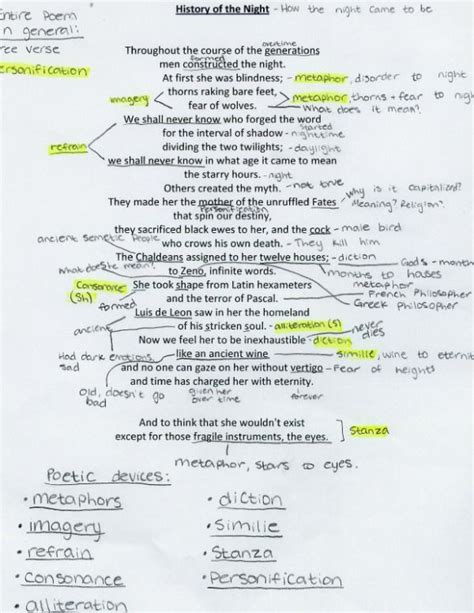 Entire Poem
in general:
Free verse
Personification
History of the Night - How the night came to be
overtime
Throughout the course of the generations
formed
men constructed the night.
At first she was blindness; - metaphor, disorder to night
imagery
thorns raking bare feet, metaphor, thorns + fear to night
fear of wolves. What does it mean?
We shall never know who forged the word
started
for the interval of shadow - nighttime
refrain
dividing the two twilights; - daylight
we shall never know in what age it came to mean
the starry hours. - night
Others created the myth. - not true
Why is it capitalized?
They made her the mother of the unruffled Fates Meaning? Religion?
Personification
that spin our destiny,
they sacrificed black ewes to her, and the cock - male bird
ancient semetic people
who crows his own death. - They kill him
The Chaldeans assigned to her twelve houses; - diction
Gods - months
What does she mean?
to Zeno, infinite words. months to houses
metaphor
Consonance (Sh)
She took shape from Latin hexameters French Philosopher
formed
and the terror of Pascal. Greek Philosopher
Luis de Leon saw in her the homeland
ancient
of his stricken soul. - alliteration (s)
never dies
Now we feel her to be inexhaustible - diction
Had dark emotions, sad
like an ancient wine simille, wine to eternity
and no one can gaze on her without vertigo - Fear of heights
Old, doesn't go bad
given her over time
forever
and time has charged her with eternity.
And to think that she wouldn't exist
except for those fragile instruments, the eyes.
Stanza
metaphor, stars to eyes.
Poetic devices:
• metaphors
• imagery
• refrain
• Consonance
• alliteration
• diction
• Similie
• Stanza
• Personification